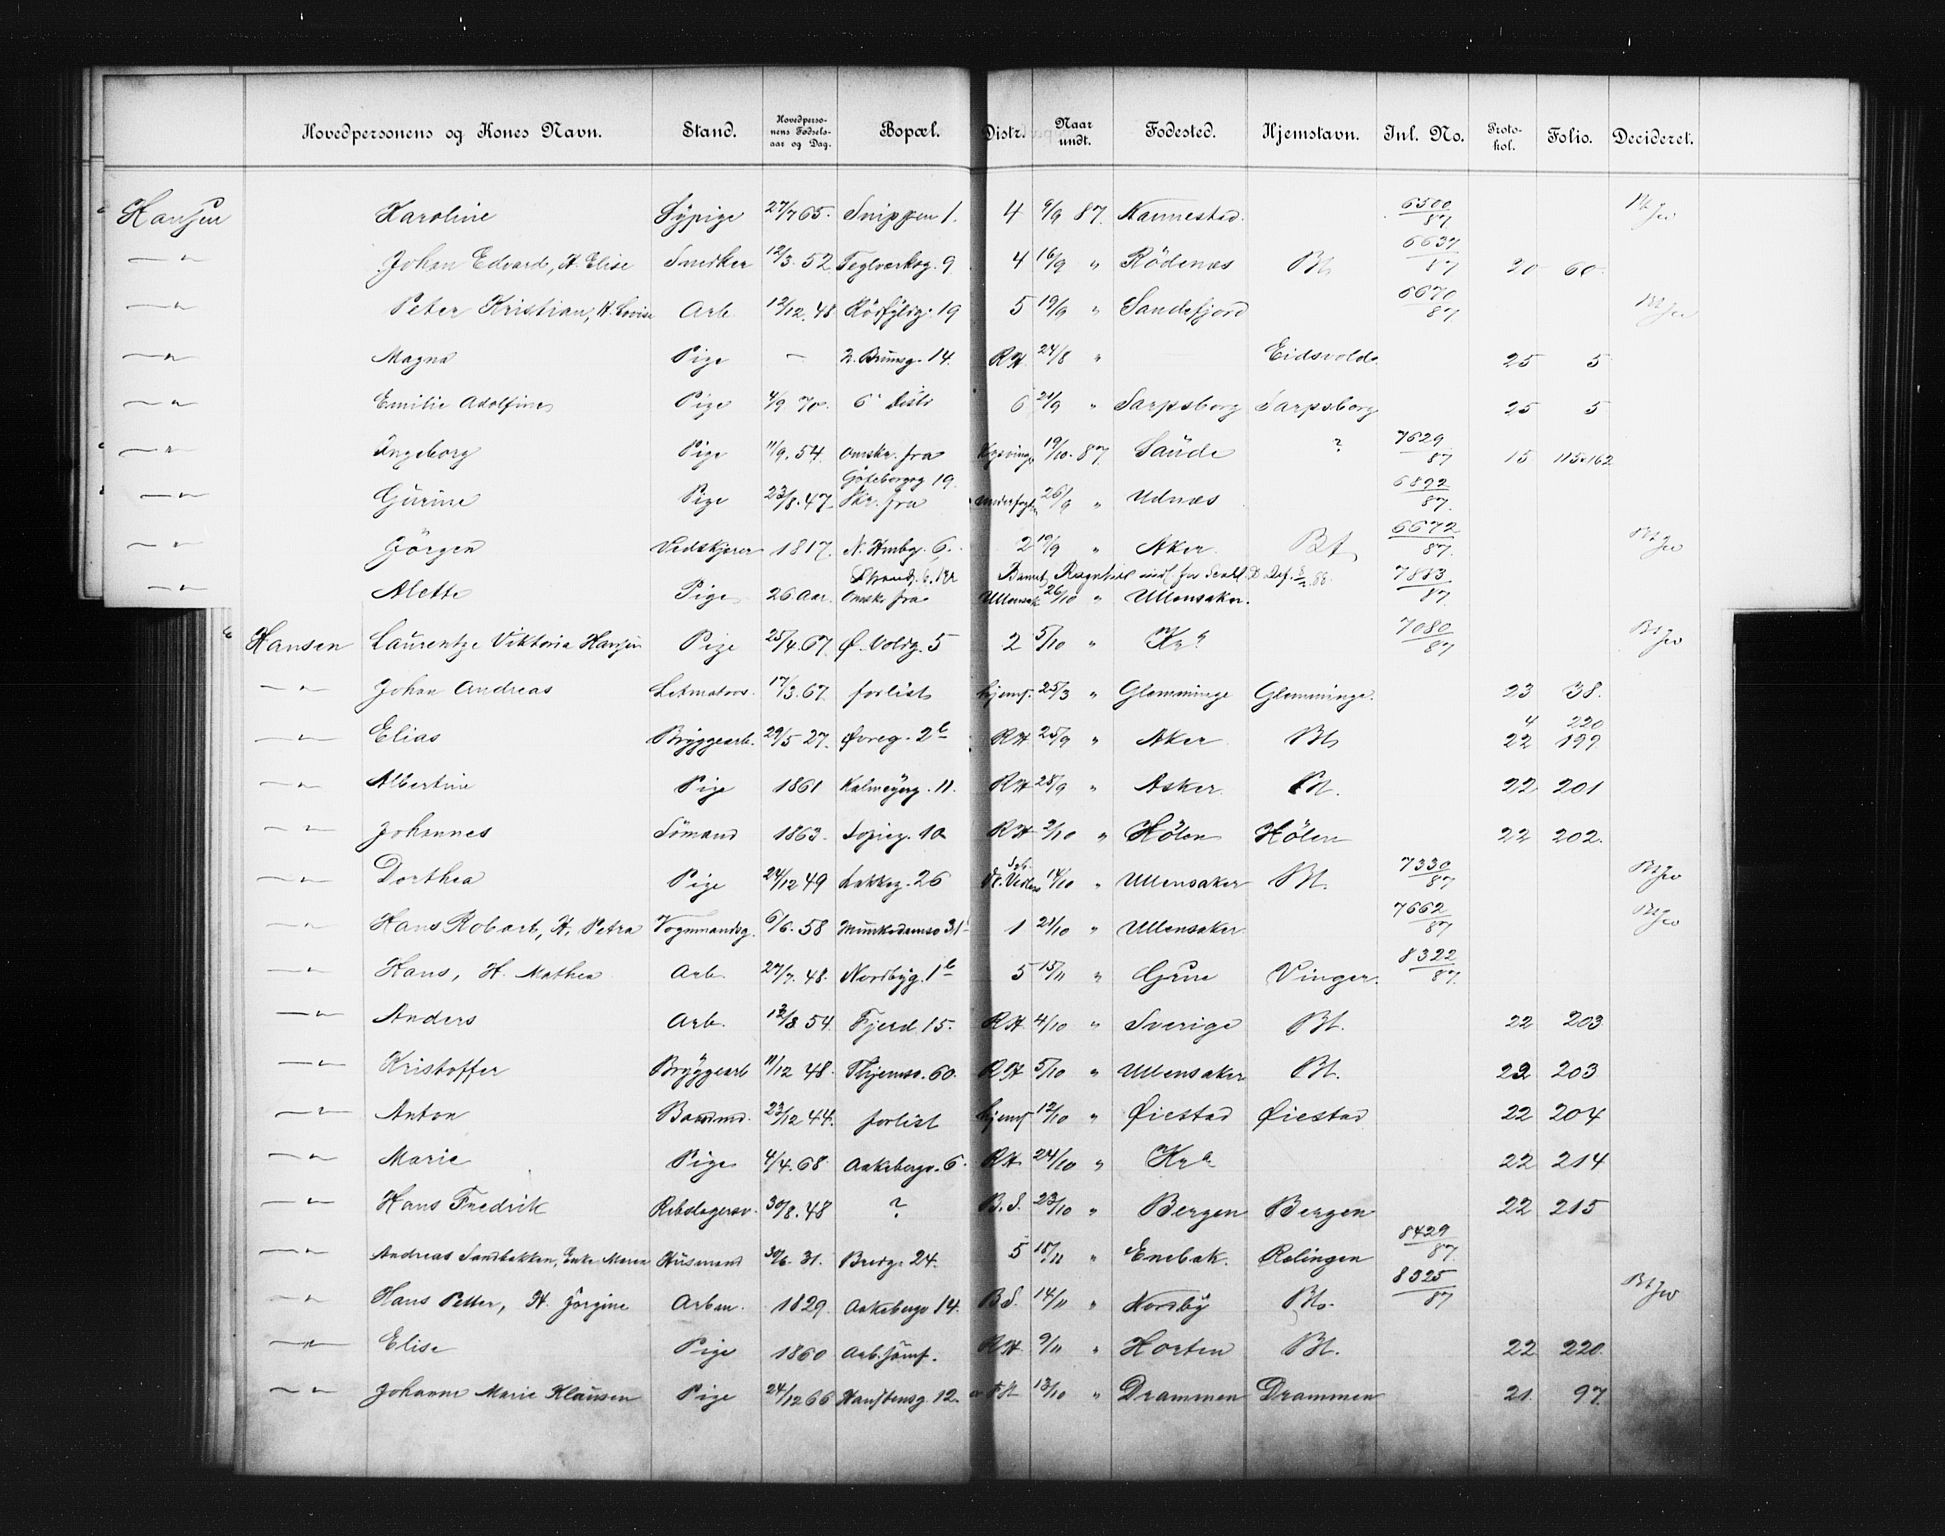 Hovedpersonens og Kones Navn. Stand. Hovedpersonens Fødselsaar og Dag. Bopæl. Distr. Naar undt. Fødested. Hjemstavn. Inl. No. Protokol. Folio. Decideret.
Hansen Karoline Sypige 27/7 65. Snippen 1. 4 9/9 87. Nannestad. 6500/87
—"— Johan Edvard, H. Elise Snedker 12/3. 52 Teglverksg. 9 4 16/9 " Rödenæs Bt 6637/87 20 60.
—"— Peter Kristian, H. Lovise Arb 12/12. 48 19 5 19/9 " Sandefjord 6670/87
—"— Magna Pige — 2. Brunsg. 14. RH. 24/8 " Eidsvold 25 5
—"— Emilie Adolfine Pige 4/9. 70. 6' Distr 6 21/9 " Sarpsborg Sarpsborg 25 5
—"— Ingeborg Pige 11/9. 54. Omskr. fra Kgsving. 19/10. 87 Saude ? 7629/87 15 115-162
—"— Gurine Pige 23/8. 47. Göteborgg 19. Skr. fra 26/9 " Udnæs 6892/87
—"— Jörgen Vedskjærer 1817. N. Hmbg. 6. 2 19/9 " Aker. Bt 6672/87
—"— Alette Pige 26 Aar. Strandg. 6. Omskr fra Barnet Ragnhild Ullensak 26/10 " Ullensaker. 7883/87
Hansen Laurentze Viktoria Hansen Pige 25/4. 67. Ø. Voldg. 5 2 5/10 " Kra 7080/87
—"— Johan Andreas Letmatros. 17/3. 67. forlist hjemf. 25/3 " Glemminge Glemminge. 23 38.
—"— Elias Bryggearb. 29/5 27. Øvreg. 2b RH 25/9 " Aker Bt 4 220 22 199
—"— Albertine Pige 1861 Kalmeyerg. 11. RH 28/9 " Asker Bt. 22 201
—"— Johannes Sömand 1863. Sofieg. 10 RH 2/10 " Hölen Hölen 22 202.
—"— Dorthea Pige 24/12 49 Lakkeg. 26 14/10 " Ullensaker Bt. 7330/87
—"— Hans Robart, H. Petra Vognmandsg. 6/6. 58 Munkedamsv 31 1 21/10 " Ullensaker 7662/87
—"— Hans, H. Mathea Arb. 27/7. 48. Nordbyg. 1b 5 15/11 " Grue Vinger. 8322/87
—"— Anders Arb. 12/8 54. Fjerd. 15. RH. 4/10 " Sverige Bt. 22 203
—"— Kristoffer Bryggearb 11/12 48. Thjemsv. 60. RH 5/10 " Ullensaker Bt. 22 203
—"— Anton 23/12 44. forlist hjemf 12/10 " Øiestad Øiestad 22 204
—"— Marie Pige 4/4. 68. Aakebergv. 6. RH. 24/10 " Kra 22 214
—"— Hans Fredrik Rebslagersv. 30/8. 48 ? B.S. 23/10 " Bergen Bergen 22 215
—"— Andreas Sandbakken, Enke Maren Husmand 30/6. 31. Bredg. 24. 5 18/11 " Enebak. Rælingen 8429/87
—"— Hans Petter, H. Jörgine Arbm. 1829. Aakebergv 14. B S. 14/11 " Nordby Bt. 8325/87
—"— Elise Pige 1860 Arb.samf. RH. 9/11 " Horten Bt. 22 220.
—"— Johanne Marie Klausen Pige 24/12 66 12. 13/10 " Drammen Drammen 21. 97.